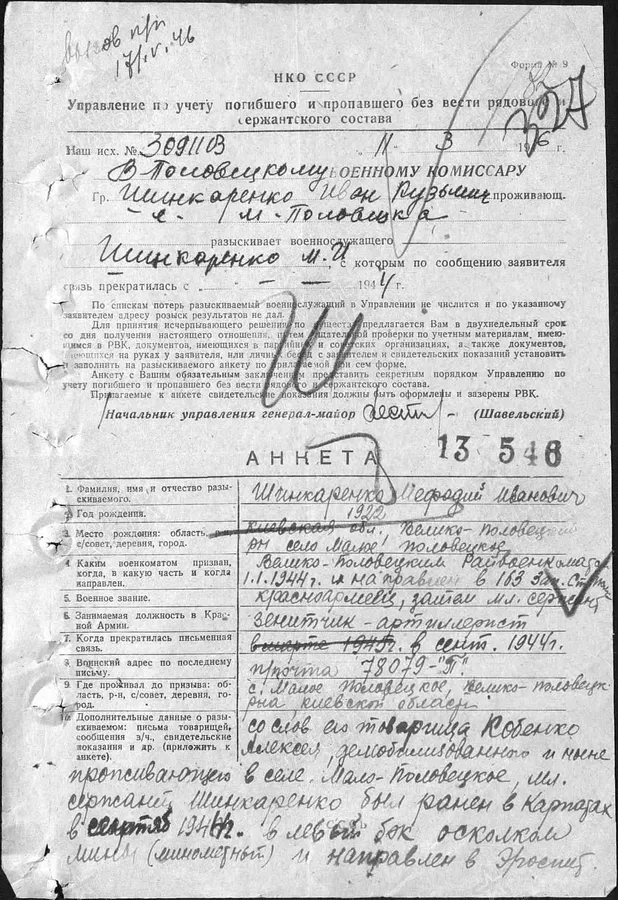 17/V. 46
Форма № 9
НКО СССР
327
Управление по учету погибшего и пропавшего без вести рядового и
сержантского состава
Наш исх. № 309113 11 3 1946
В-Половецкому ВОЕННОМУ КОМИССАРУ
Гр. Шинкаренко Иван Кузьмич проживающ.
с. М-Половецка
разыскивает военнослужащего
Шинкаренко М. И., с которым по сообщению заявителя
связь прекратилась с — — — 1944 г.
По спискам потерь разыскиваемый военнослужащий в Управлении не числится и по указанному
заявителем адресу розыск результатов не дал.
Для принятия исчерпывающего решения по существу предлагается Вам в двухнедельный срок
со дня получения настоящего отношения, путем тщательной проверки по учетным материалам, имею-
щимся в РВК, документов, имеющихся в партийных и советских организациях, а также документов,
имеющихся на руках у заявителя, или личных бесед с заявителем и свидетельских показаний установить
и заполнить на разыскиваемого анкету по прилагаемой при сем форме.
Анкету с Вашим обязательным заключением представить секретным порядком Управлению по
учету погибшего и пропавшего без вести рядового и сержантского состава.
Прилагаемые к анкете свидетельские показания должны быть оформлены и заверены РВК.
Начальник управления генерал-майор (Шавельский)
13 546
АНКЕТА
1. Фамилия, имя и отчество разы-
скиваемого.
Шинкаренко Мефодий Иванович
2. Год рождения.
1922
3. Место рождения: область,
с/совет, деревня, город.
Киевская обл., Велико-Половецкий
р-н село Малое Половецкое
4. Каким военкоматом призван,
когда, в какую часть и когда
направлен.
Велико-Половецким Райвоенкоматом
1.1.1944г. и направлен в 163 зап. стр.
5. Военное звание.
красноармеец, затем мл. сержант
6. Занимаемая должность в Крас-
ной Армии.
зенитчик-артиллерист
7. Когда прекратилась письменная
связь.
в марте 1945г. в сент. 1944г.
8. Воинский адрес по последнему
письму.
п/почта 78079-"П"
9. Где проживал до призыва: об-
ласть, р-н, с/совет, деревня, го-
род.
с. Малое Половецкое, Велико-Половецк.
р-на Киевской области
10. Дополнительные данные о разы-
скиваемом: письма товарищей,
сообщения в/ч, свидетельские
показания и др. (приложить к
анкете).
со слов его товарища Кобенко
Алексея, демобилизованного и ныне
проживающего в селе Мало-Половецкое, мл.
сержант Шинкаренко был ранен в Карпатах
в сентяб 1944г. в левый бок осколком
мины (минометный) и направлен в